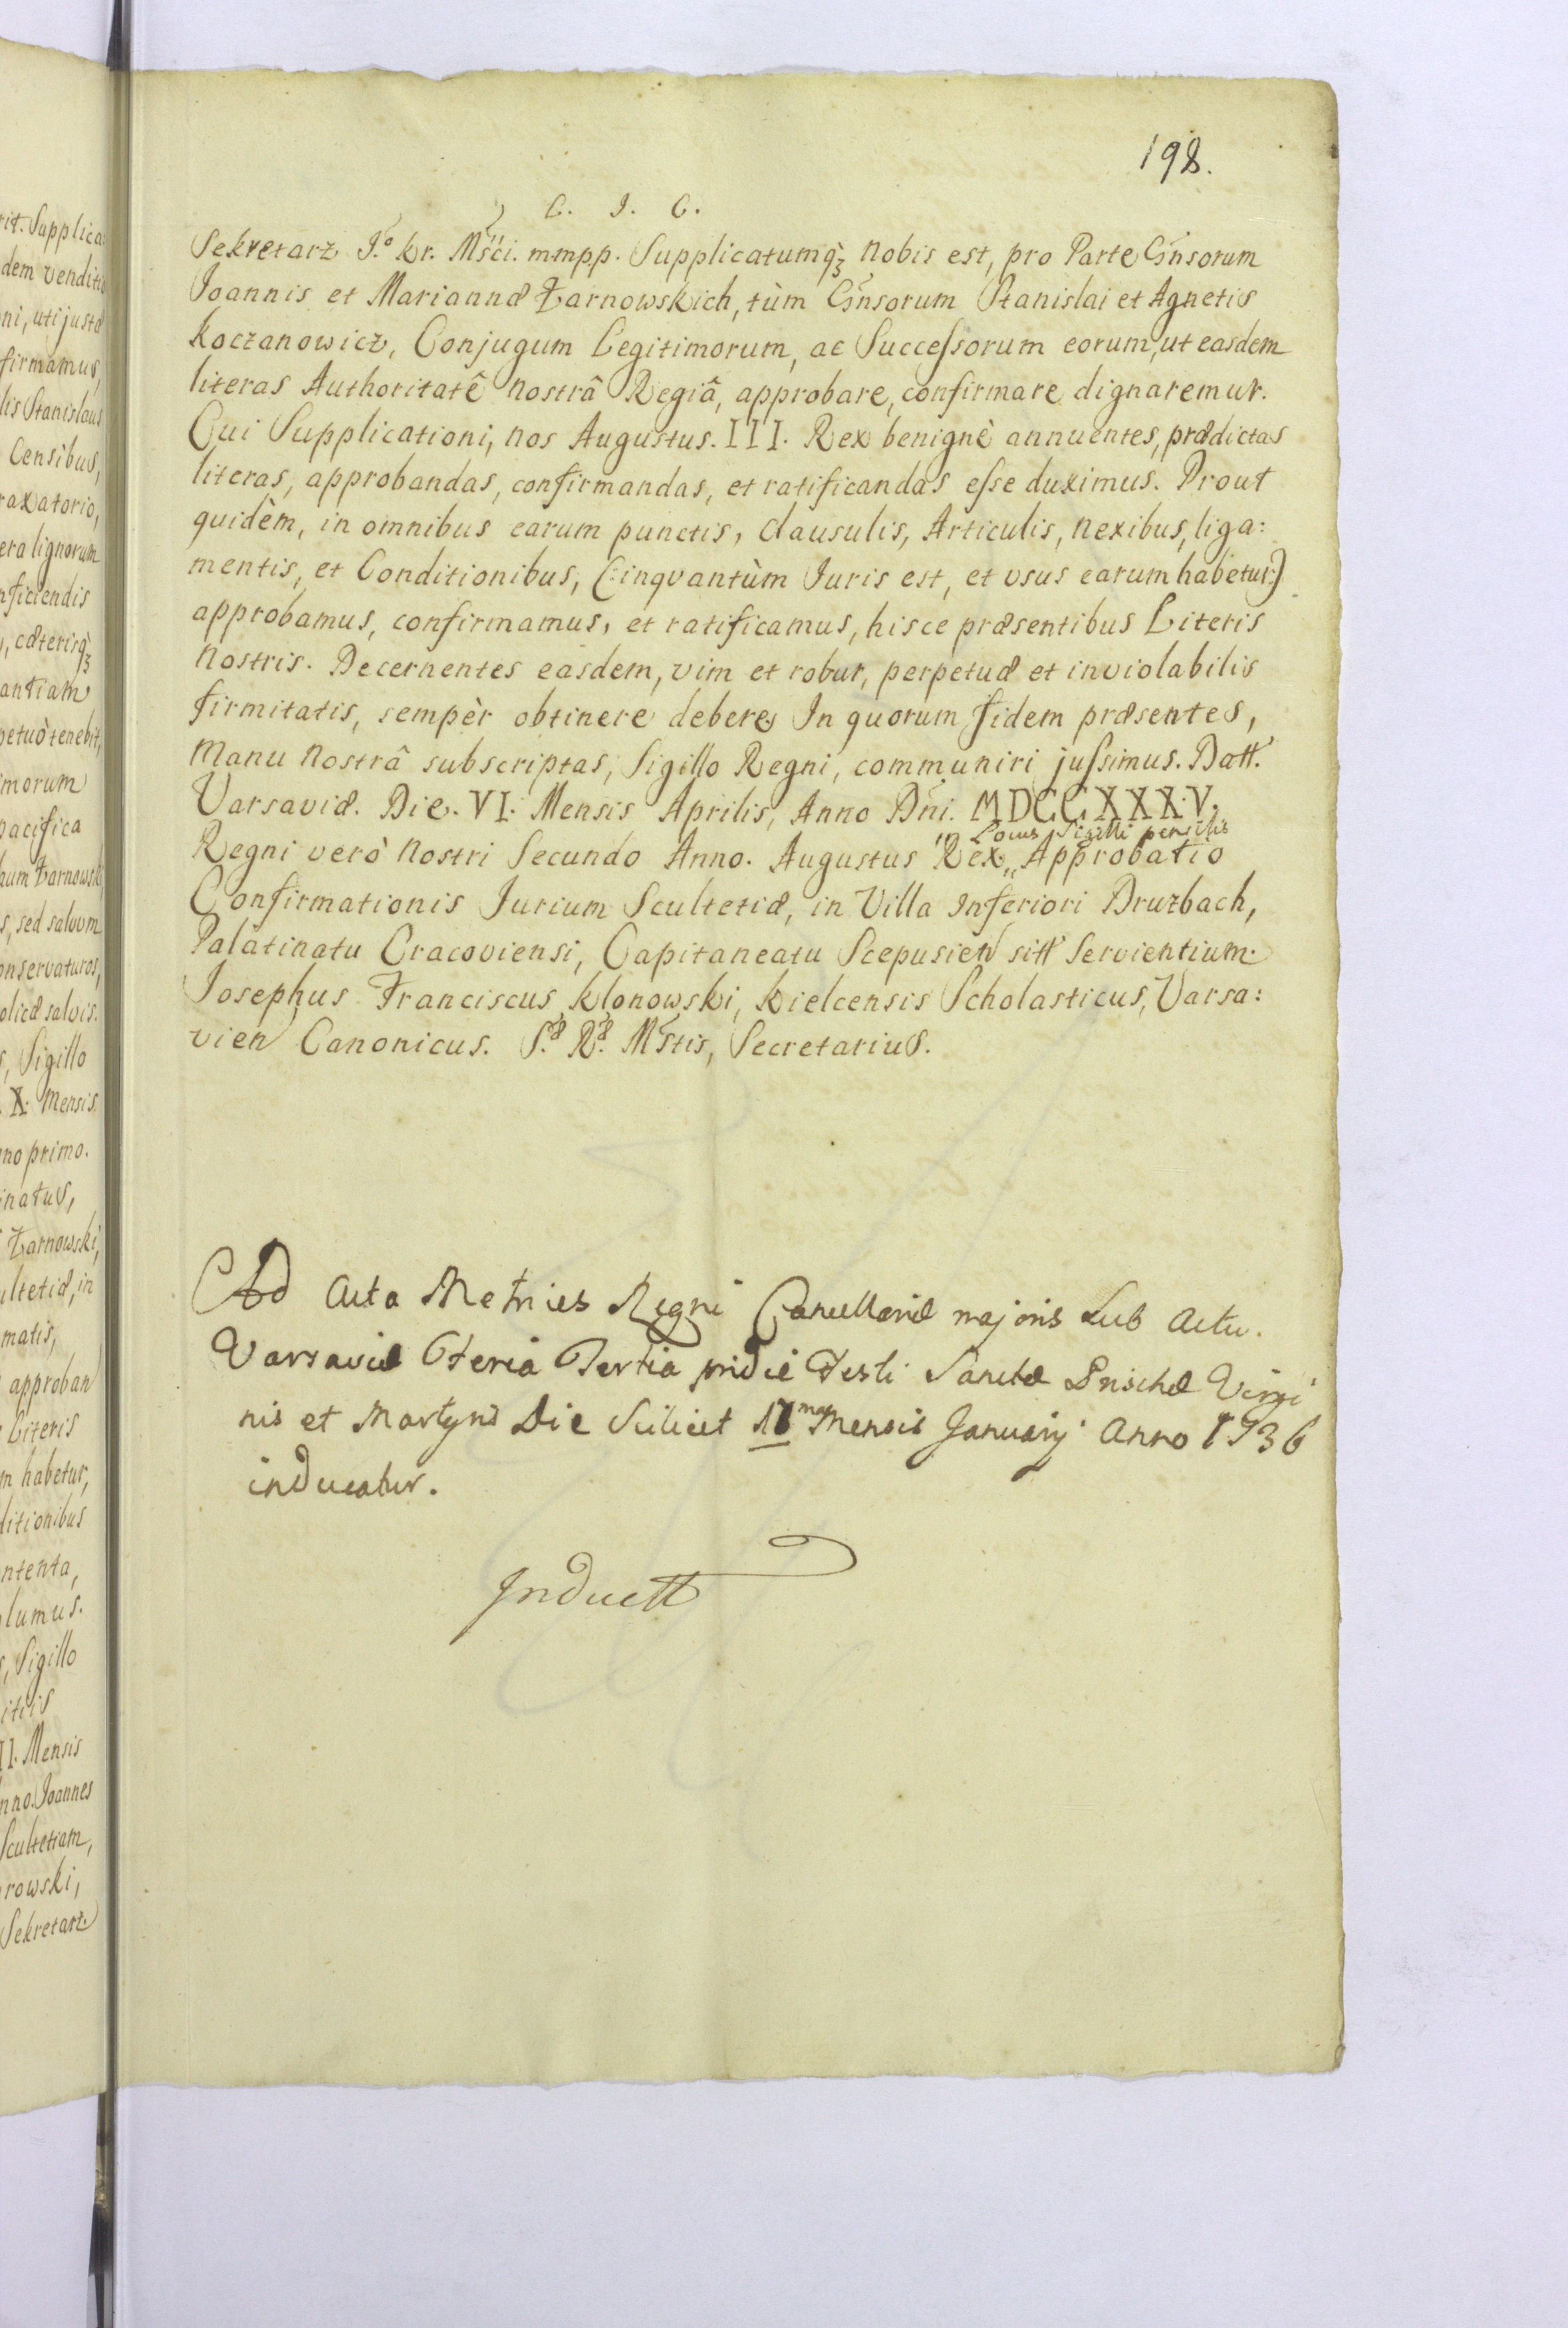 198.
C. J. C.
Sekretarz J.o kr. Mści. mmpp. Supplicatumq3 nobis est, pro Parte Gnsorum
Joannis et Mariannæ Żarnowskich, tùm Gnsorum Stanislai et Agnetis
Koczanowicz, Conjugum Legitimorum, ac Succeſsorum eorum, ut easdem
literas Authoritatê nostrâ Regiâ, approbare, confirmare dignaremur.
Cui Supplicationi, nos Augustus. III. Rex benignè annuentes, prædictas
literas, approbandas, confirmandas, et ratificandas eſse duximus. Prout
quidèm, in omnibus earum punctis, clausulis, Articulis, nexibus, liga:
mentis, et Conditionibus, (:inqvantùm Juris est, et vsus earum habetur:)
approbamus, confirmamus, et ratificamus, hisce præsentibus Literis
nostris. Decernentes easdem, vim et robur, perpetuæ et inviolabilis
firmitatis, sempèr obtinere debere. In quorum fidem præsentes,
manu nostrâ subscriptas, Sigillo Regni, communiri juſsimus. Datt.
Varsaviæ. Die. VI. Mensis Aprilis, Anno Dni. MDCCXXXV.
Locus Sigilli pensilis
Regni verò nostri Secundo Anno. Augustus Rex,, Approbatio
Confirmationis Jurium Scultetiæ, in Villa Inferiori Druzbach,
Palatinatu Cracoviensi, Capitaneatu Scepusien sitt Servientium.
Josephus Franciscus Klonowski, Kielcensis Scholasticus, Varsa:
vien Canonicus. S.æ R.æ Mstis, Secretarius.
Ad Acta Metrices Regni Cancellariæ majoris Sub Actu.
Varsaviæ Feria Tertia pridie Festi Sanctæ Priscæ Virgi
nis et Martyris Die Scilicet 17ma Mensis Januarij Anno 1736
inducatur.
Inductt